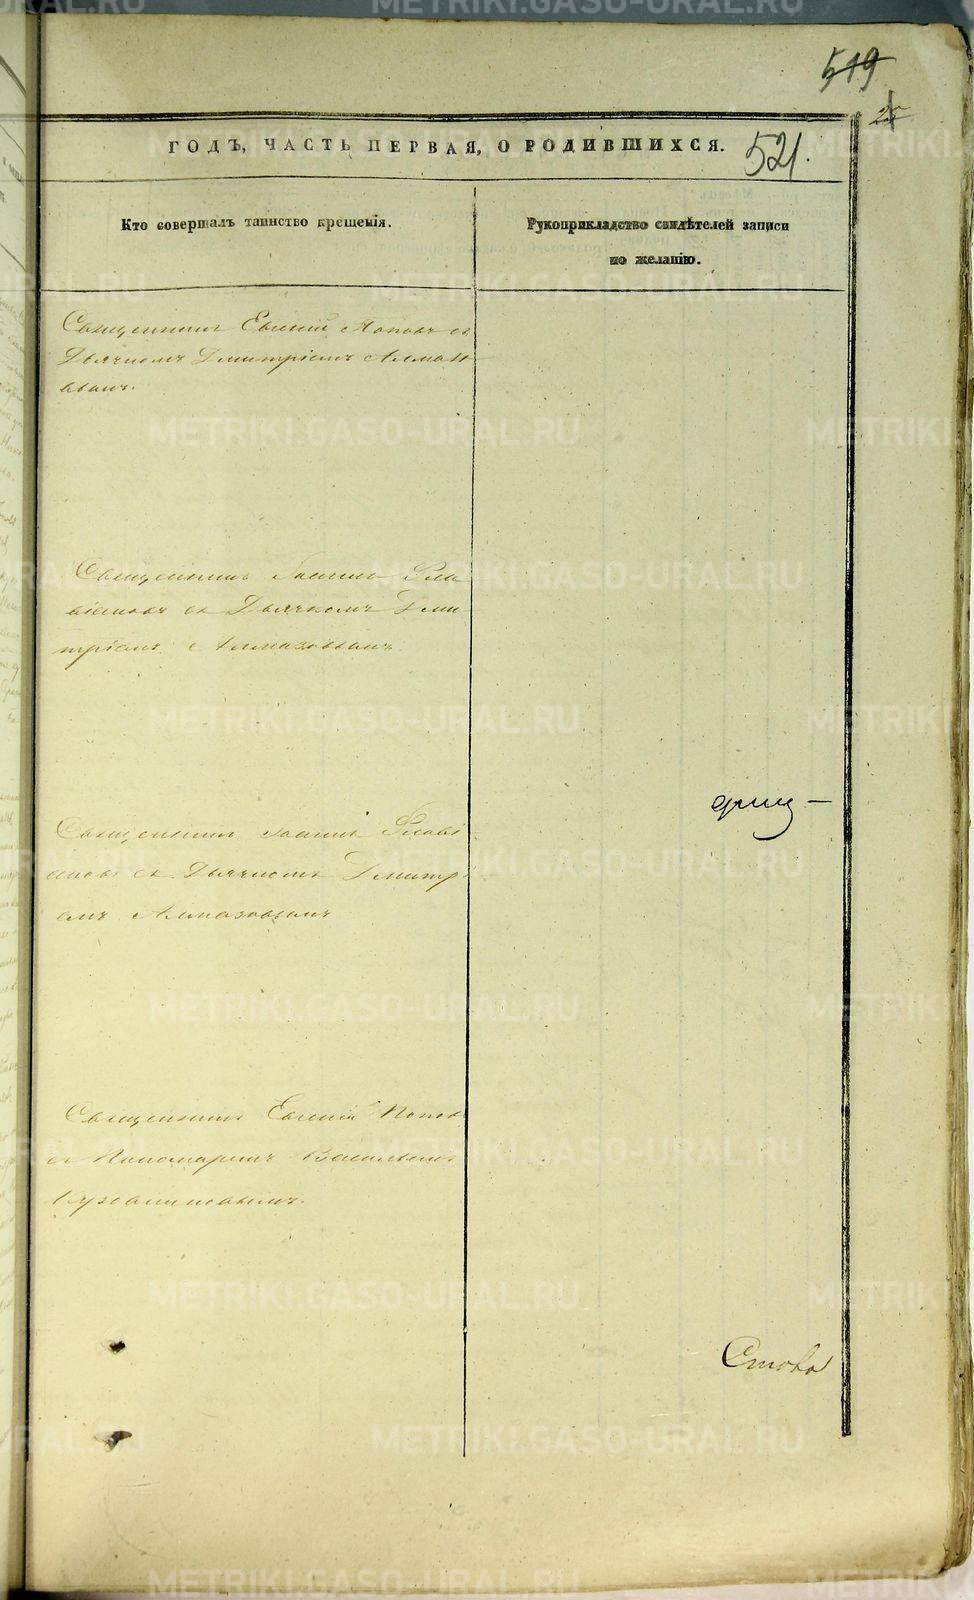 519
25
ГОДЪ, ЧАСТЬ ПЕРВАЯ, О РОДИВШИХСЯ.
521.
Кто совершалъ таинство крещенія.
Рукоприкладство свидѣтелей записи
по желанію.
Священникъ Евгеній Поповъ съ
Дьячкомъ Димитріемъ Алмазо
вымъ.
Священникъ Іоаннъ Фла
віановъ съ Дьячкомъ Дими
тріемъ Алмазовымъ
Священникъ Іоаннъ Флаві
ановъ съ Дьячкомъ Димитрі
емъ Алмазовымъ
Священникъ Евгеній Поповъ
съ Пономаремъ Васильемъ
METRIKI.GASO-URAL.RU